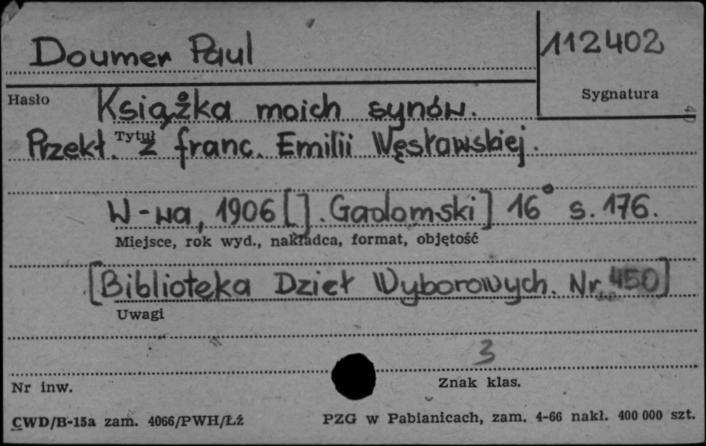 Doumer Paul
112402
Hasło
Sygnatura
Książka moich synów.
Tytuł
Przekł. z franc. Emilii Węsławskiej.
W-wa, 1906 [J. Gadomski] 16° s. 176.
Miejsce, rok wyd., nakładca, format, objętość
[Biblioteka Dzieł Wyborowych. Nr 450]
Uwagi
3
Nr inw.
Znak klas.
CWD/B-15a zam. 4066/PWH/Łź
PZG w Pabianicach, zam. 4-66 nakł. 400 000 szt.